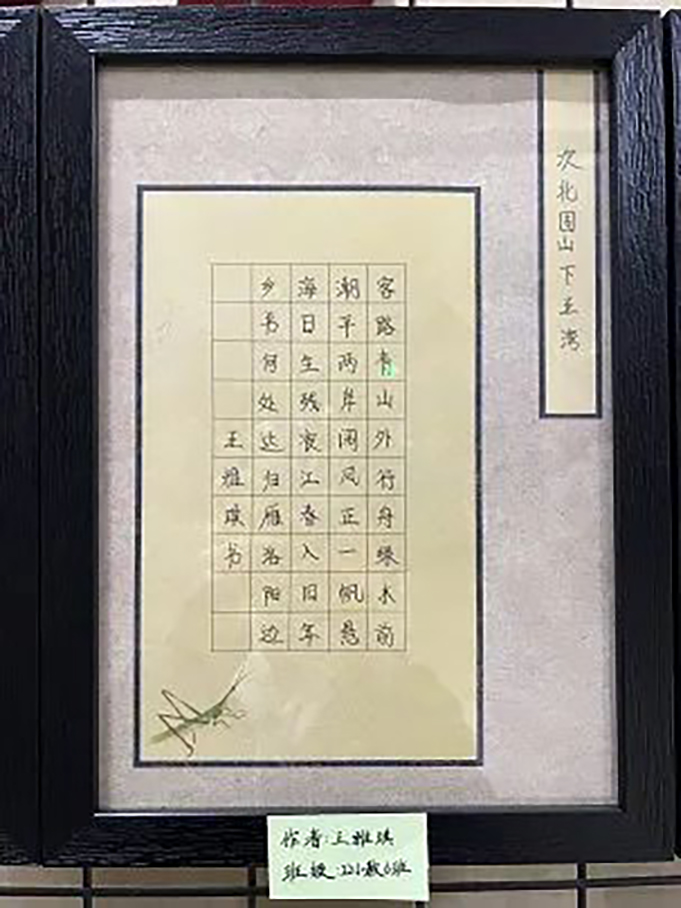 次北固山下王湾
客路青山外行舟绿水前
潮平两岸阔风正一帆悬
海日生残夜江春入旧年
乡书何处达归雁洛阳边
王雅琪书
作者:王雅琪
班级: